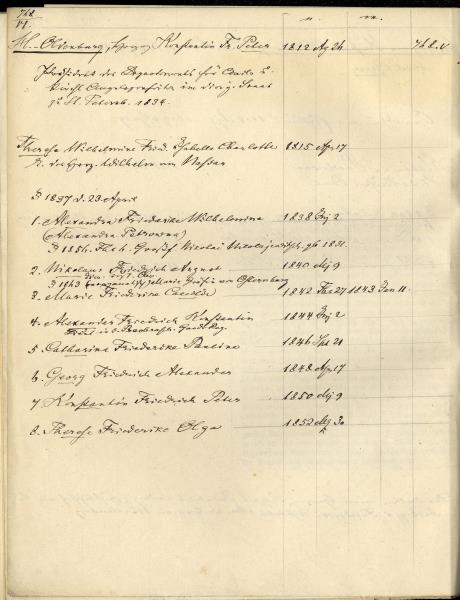 768
n. m.
Hl. Oldenburg, Herzog Konstantin Fr. Peter 1812 Ag 26 768.V
Präsident des Departements für Civil u.
Angelegenheiten im Staat
zu St. Petersb. 1834.
Therese Wilhelmine Fried. Isabelle Charlotte 1815 Apr 17
T. des Herz. Wilhelm von Nassau
1837 d. 23 April
1. Alexandra Friederike Wilhelmina 1838 Jny 2
(Alexandra Petrowna)
1856 Großf. Nicolai Nicolajewitsch, gb 1831.
2. Nikolaus Friedrich August 1840 My 9
1863 Marie Gräfin von Osternburg
3. Marie Friederica Caecilia 1842 Feb 27 1843 Jan 11
4. Alexander Friedrich Konstantin 1844 Jny 2
5. Catharina Friederike Pauline 1846 Spt 21
6. Georg Friedrich Alexander 1848 Apr 17
7 Konstantin Friedrich Peter 1850 My 9
8. Therese Friederike Olga 1852 My 30